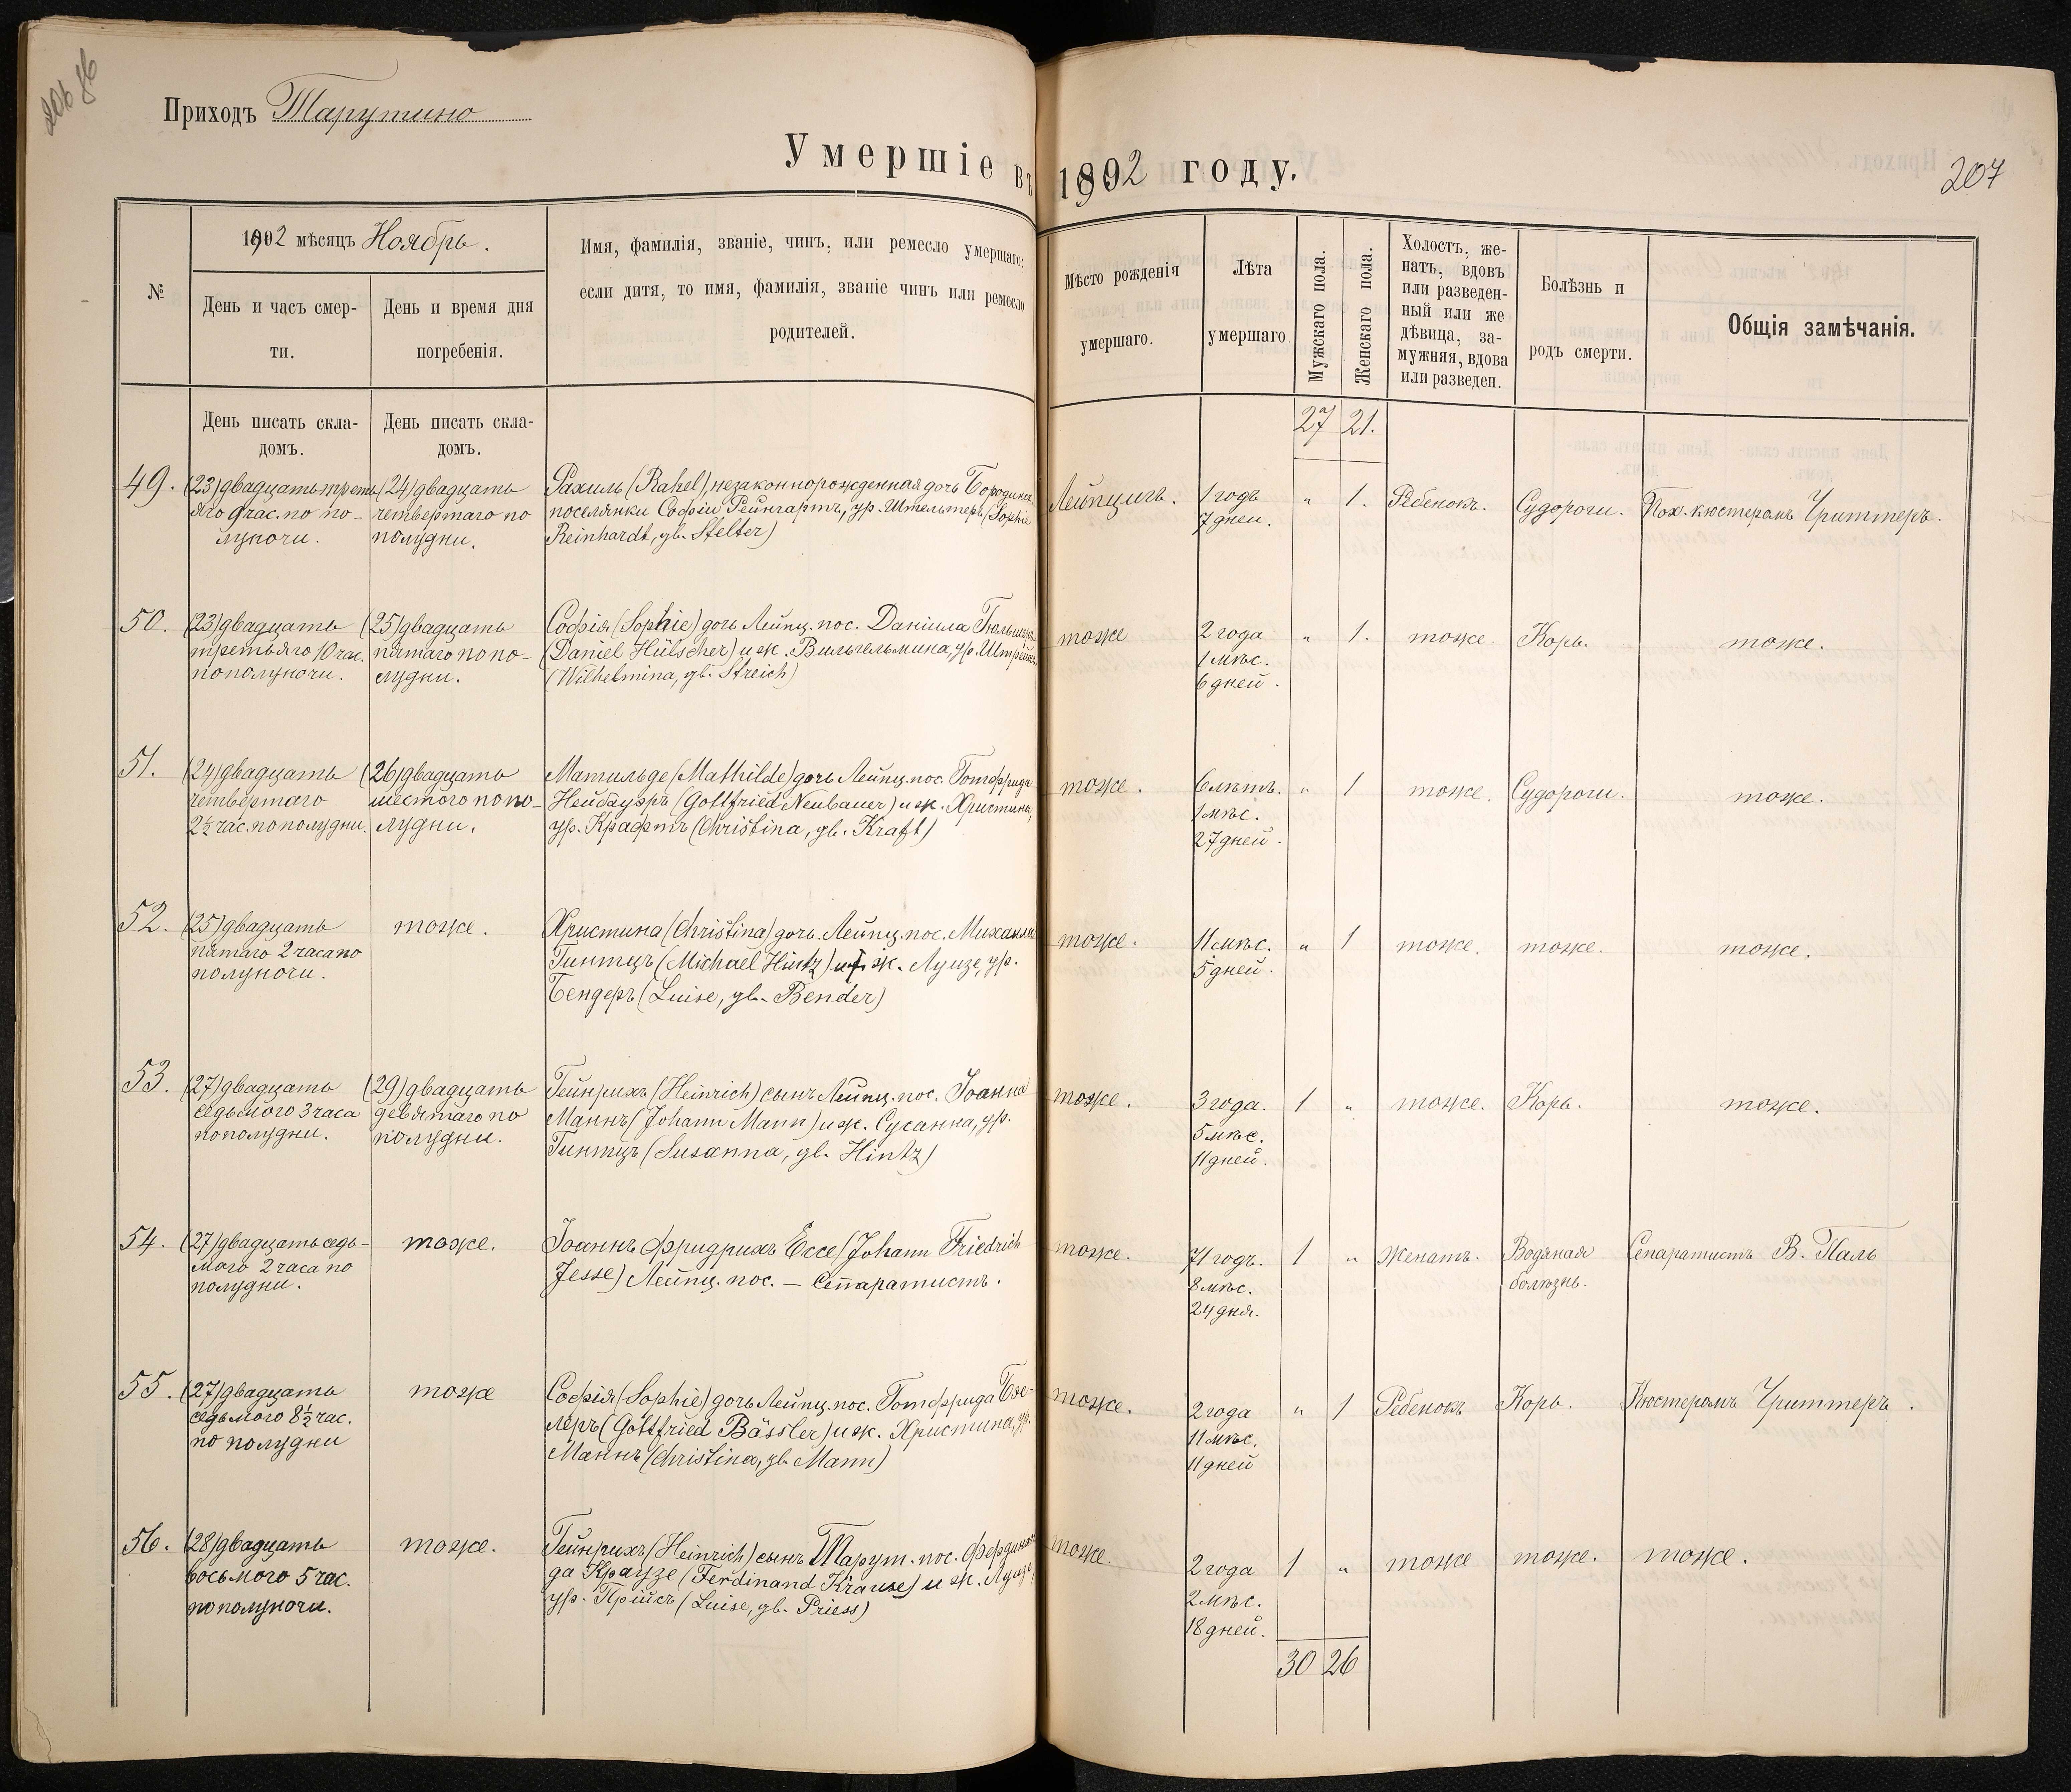 206 об
Приходъ Тарутино
Умершіе въ 1892 году.
207
№
1892 мѣсяцъ Ноябрь.
День и часъ смер-
ти.
День и время дня
погребенія.
Имя, фамилія, званіе, чинъ, или ремесло умершаго;
если дитя, то имя, фамилія, званіе чинъ или ремесло
родителей.
Мѣсто рожденія
умершаго.
Лѣта
умершаго
Мужскаго пола.
Женскаго пола.
Холостъ, же-
натъ, вдовъ
или разведен-
ный или же
дѣвица, за-
мужняя, вдова
или разведен.
Болѣзнь и
родъ смерти.
Общія замѣчанія.
День писать скла-
домъ.
День писать скла-
домъ.
27 21.
49.
(23) двадцать треть
яго 9 час. по по-
луночи.
(24) двадцать
четвертаго по
полудни.
Рахиль (Rahel), незаконнорожденная дочь Бородинск.
поселянки Софіи Рейнгартъ, ур. Штельтеръ (Sophie
Reinhardt, gb. Stelter)
Лейпцигъ.
1 годъ
7 дней.
" 1.
Ребенокъ.
Судороги.
Пох. кюстеромъ Чриттеръ.
50.
(23) двадцать
третьяго 10 час.
пополуночи.
(25) двадцать
пятаго по по-
лудни.
Софія (Sophie) дочь Лейпц. пос. Даніила Гюльшеръ
(Daniel Hülscher) и ж. Вильгельмина, ур. Штрейхъ
(Wilhelmina, gb. Streich)
тоже
2 года
1 мѣс.
6 дней.
" 1.
тоже.
Корь.
тоже.
51.
(24) двадцать
четвертаго
2½ час. пополудни.
(26) двадцать
шестого по по-
лудни.
Матильде (Mathilde) дочь Лейпц. пос. Готфрида
Нейбауэръ (Gottfried Neubauer) и ж. Христина,
ур. Крафтъ (Christina, gb. Kraft)
тоже.
6 лѣтъ.
1 мѣс.
27 дней.
" 1
тоже.
Судороги.
тоже.
52.
(25) двадцать
пятаго 2 часа по
полуночи.
тоже.
Христина (Christina) дочь Лейпц. пос. Михаила
Гинтцъ (Michael Hintz) и ж. Луизе, ур.
Бендеръ (Luise, gb. Bender)
тоже.
11 мѣс.
5 дней.
" 1
тоже.
тоже.
тоже.
53.
(27) двадцать
седьмого 3 часа
пополудни.
(29) двадцать
девятаго по
полудни.
Гейнрихъ (Heinrich) сынъ Лейпц. пос. Іоанна
Маннъ (Johann Mann) и ж. Сусанна, ур.
Гинтцъ (Susanna, gb. Hintz)
тоже.
3 года.
5 мѣс.
11 дней.
1 "
тоже.
Корь.
тоже.
54.
(27) двадцать седь-
мого 2 часа по
полудни.
тоже.
Іоаннъ Фридрихъ Ессе (Johann Friedrich
Jesse) Лейпц. пос. – Сепаратистъ.
тоже.
71 годъ.
8 мѣс.
24 дня.
1 "
Женатъ.
Водяная
болѣзнь.
Сепаратистъ В. Паль
55.
(27) двадцать
седьмого 8½ час.
по полудни
тоже
Софія (Sophie) дочь Лейпц. пос. Готфрида Бэс-
леръ (Gottfried Bässler) и ж. Христина, ур.
Маннъ (Christina, gb. Mann)
тоже.
2 года
11 мѣс.
11 дней
" 1
Ребенокъ
Корь.
Кюстеромъ Чриттеръ.
56.
(28) двадцать
восьмого 5 час.
пополуночи.
тоже.
Гейнрихъ (Heinrich) сынъ Тарут. пос. Фердинан
да Краузе (Ferdinand Krause) и ж. Луизе,
ур. Прійсъ (Luise, gb. Priess)
тоже.
2 года
2 мѣс.
18 дней.
1 "
тоже
тоже.
тоже.
30 26